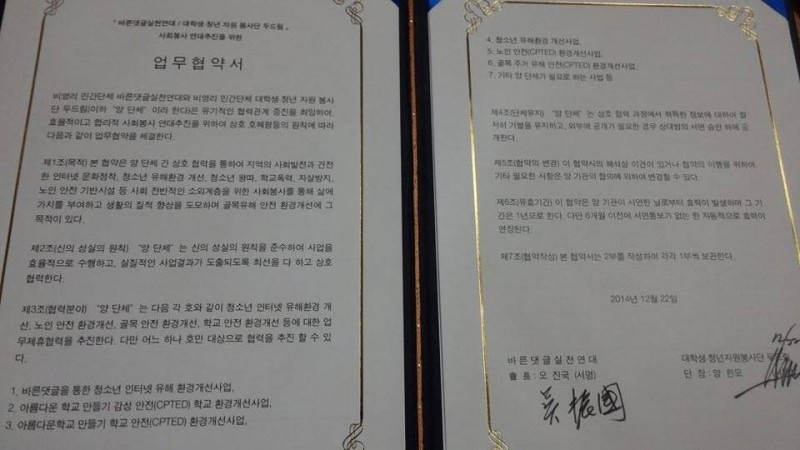 『 바른댓글실천연대 / 대학생·청년 자원 봉사단 두드림 』
사회봉사 연대추진을 위한
업무협약서
비영리 민간단체 바른댓글실천연대와 비영리 민간단체 대학생·청년 자원 봉사
단 두드림(이하 “양 단체” 이라 한다)은 유기적인 협력관계 증진을 희망하며,
효율적이고 합리적 사회봉사 연대추진을 위하여 상호 호혜평등의 원칙에 따라
다음과 같이 업무협약을 체결한다.
제1조(목적) 본 협약은 양 단체 간 상호 협력을 통하여 지역의 사회발전과 건전
한 인터넷 문화정착, 청소년 유해환경 개선, 청소년 왕따, 학교폭력, 자살방지,
노인 안전 기반시설 등 사회 전반적인 소외계층을 위한 사회봉사를 통해 삶에
가치를 부여하고 생활의 질적 향상을 도모하며 골목유해 안전 환경개선에 그
목적이 있다.
제2조(신의 성실의 원칙) “양 단체”는 신의 성실의 원칙을 준수하여 사업을
효율적으로 수행하고, 실질적인 사업결과가 도출되도록 최선을 다 하고 상호
협력한다.
제3조(협력분야) “양 단체”는 다음 각 호와 같이 청소년 인터넷 유해환경 개
선, 노인 안전 환경개선, 골목 안전 환경개선, 학교 안전 환경개선 등에 대한 업
무제휴협력을 추진한다. 다만 어느 하나 호만 대상으로 협력을 추진 할 수 있
다.
1. 바른댓글을 통한 청소년 인터넷 유해 환경개선사업,
2. 아름다운 학교 만들기 감성 안전(CPTED) 학교 환경개선사업,
3. 아름다운학교 만들기 학교 안전(CPTED) 환경개선사업,
4. 청소년 유해환경 개선사업,
5. 노인 안전(CPTED) 환경개선사업,
6. 골목 주거 유해 안전(CPTED) 환경개선사업,
7. 기타 양 단체가 필요로 하는 사업 등
제4조(단체유지) “양 단체”는 상호 협력 과정에서 취득한 정보에 대하여 철
저히 기밀을 유지하고, 외부에 공개가 필요한 경우 상대방의 서면 승인 하에 공
개한다.
제5조(협약의 변경) 이 협약서의 해석상 이견이 있거나 협약의 이행을 위하여
기타 필요한 사항은 양 기관의 협의에 의하여 변경할 수 있다.
제6조(유효기간) 이 협약은 양 기관이 서면한 날로부터 효력이 발생하며 그 기
간은 1년으로 한다. 다만 6개월 이전에 서면통보가 없는 한 자동적으로 효력이
연장된다.
제7조(협약작성) 본 협약서는 2부를 작성하여 각각 1부씩 보관한다.
2014년 12월 22일
바른댓글실천연대
총 표 : 오 진국 (서명)
吳振國
대학생·청년자원봉사단
단 장 : 양 한모